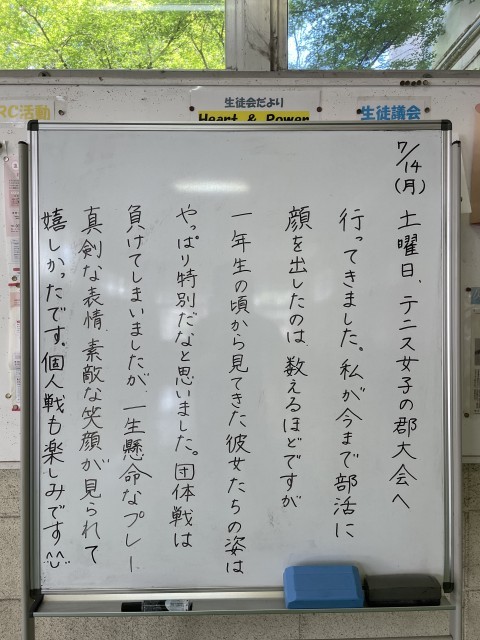 RC活動
生徒会だより
Heart & Power
生徒議会
7/14(月)
土曜日、テニス女子の郡大会へ
行ってきました。私が今まで部活に
顔を出したのは、数えるほどですが
一年生の頃から見てきた彼女たちの姿は
やっぱり特別だなと思いました。団体戦は
負けてしまいましたが、一生懸命なプレー
真剣な表情、素敵な笑顔が見られて
嬉しかったです。個人戦も楽しみです^^